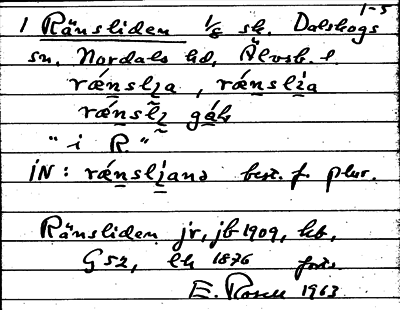 1-5
1 Ränsliden 1/8 sk. Dalskogs
sn, Nordals hd, Älvsb. l
rǽnsli̯a, rǽnslìa
rǽnsli̯ gåk
"i R."
iN: rǽnsli̯anə best. f. plur.
Ränsliden jr, jb 1909, kb,
G 52, lk 1876 forts.
E. Rosell 1963